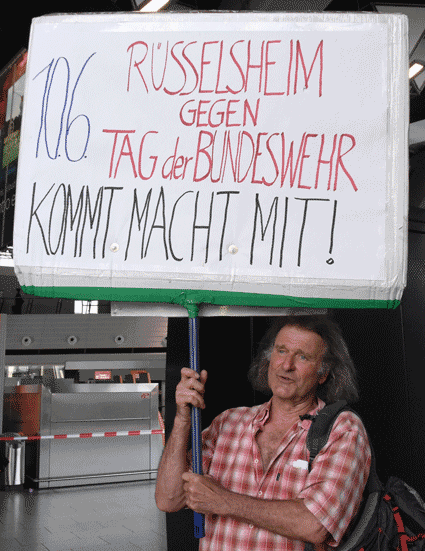 10.6.
RÜSSELSHEIM
GEGEN
TAG der BUNDESWEHR
KOMMT MACHT MIT!